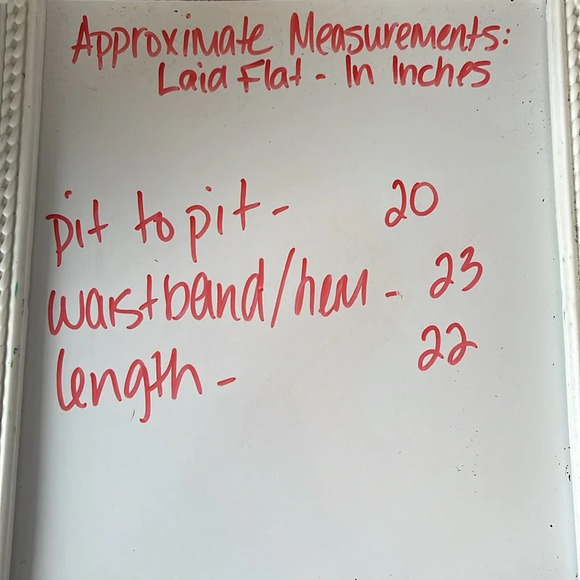 Approximate Measurements:
Laid Flat - In Inches
pit to pit - 20
waistband/hem - 23
length - 22